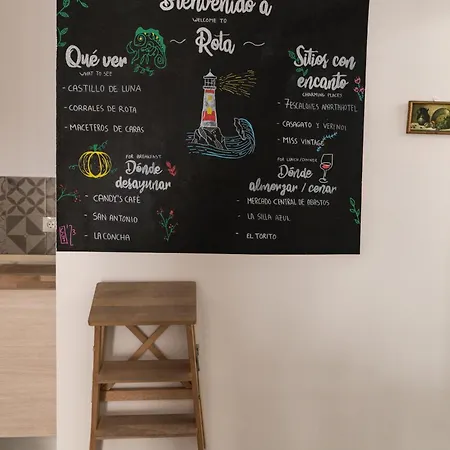 Bienvenido a
WELCOME TO
Rota
Qué ver
WHAT TO SEE
- CASTILLO DE LUNA
- CORRALES DE ROTA
- MACETEROS DE CARAS
Sitios con
encanto
CHARMING PLACES
- 7 ESCALONES APARTHOTEL
- CASAGATO Y
- MISS VINTAGE
FOR BREAKFAST
Dónde
desayunar
- CANDY'S CAFÉ
- SAN ANTONIO
- LA CONCHA
FOR LUNCH/DINNER
Dónde
almorzar / cenar
- MERCADO CENTRAL DE ABASTOS
- LA SILLA AZUL
- EL TORITO